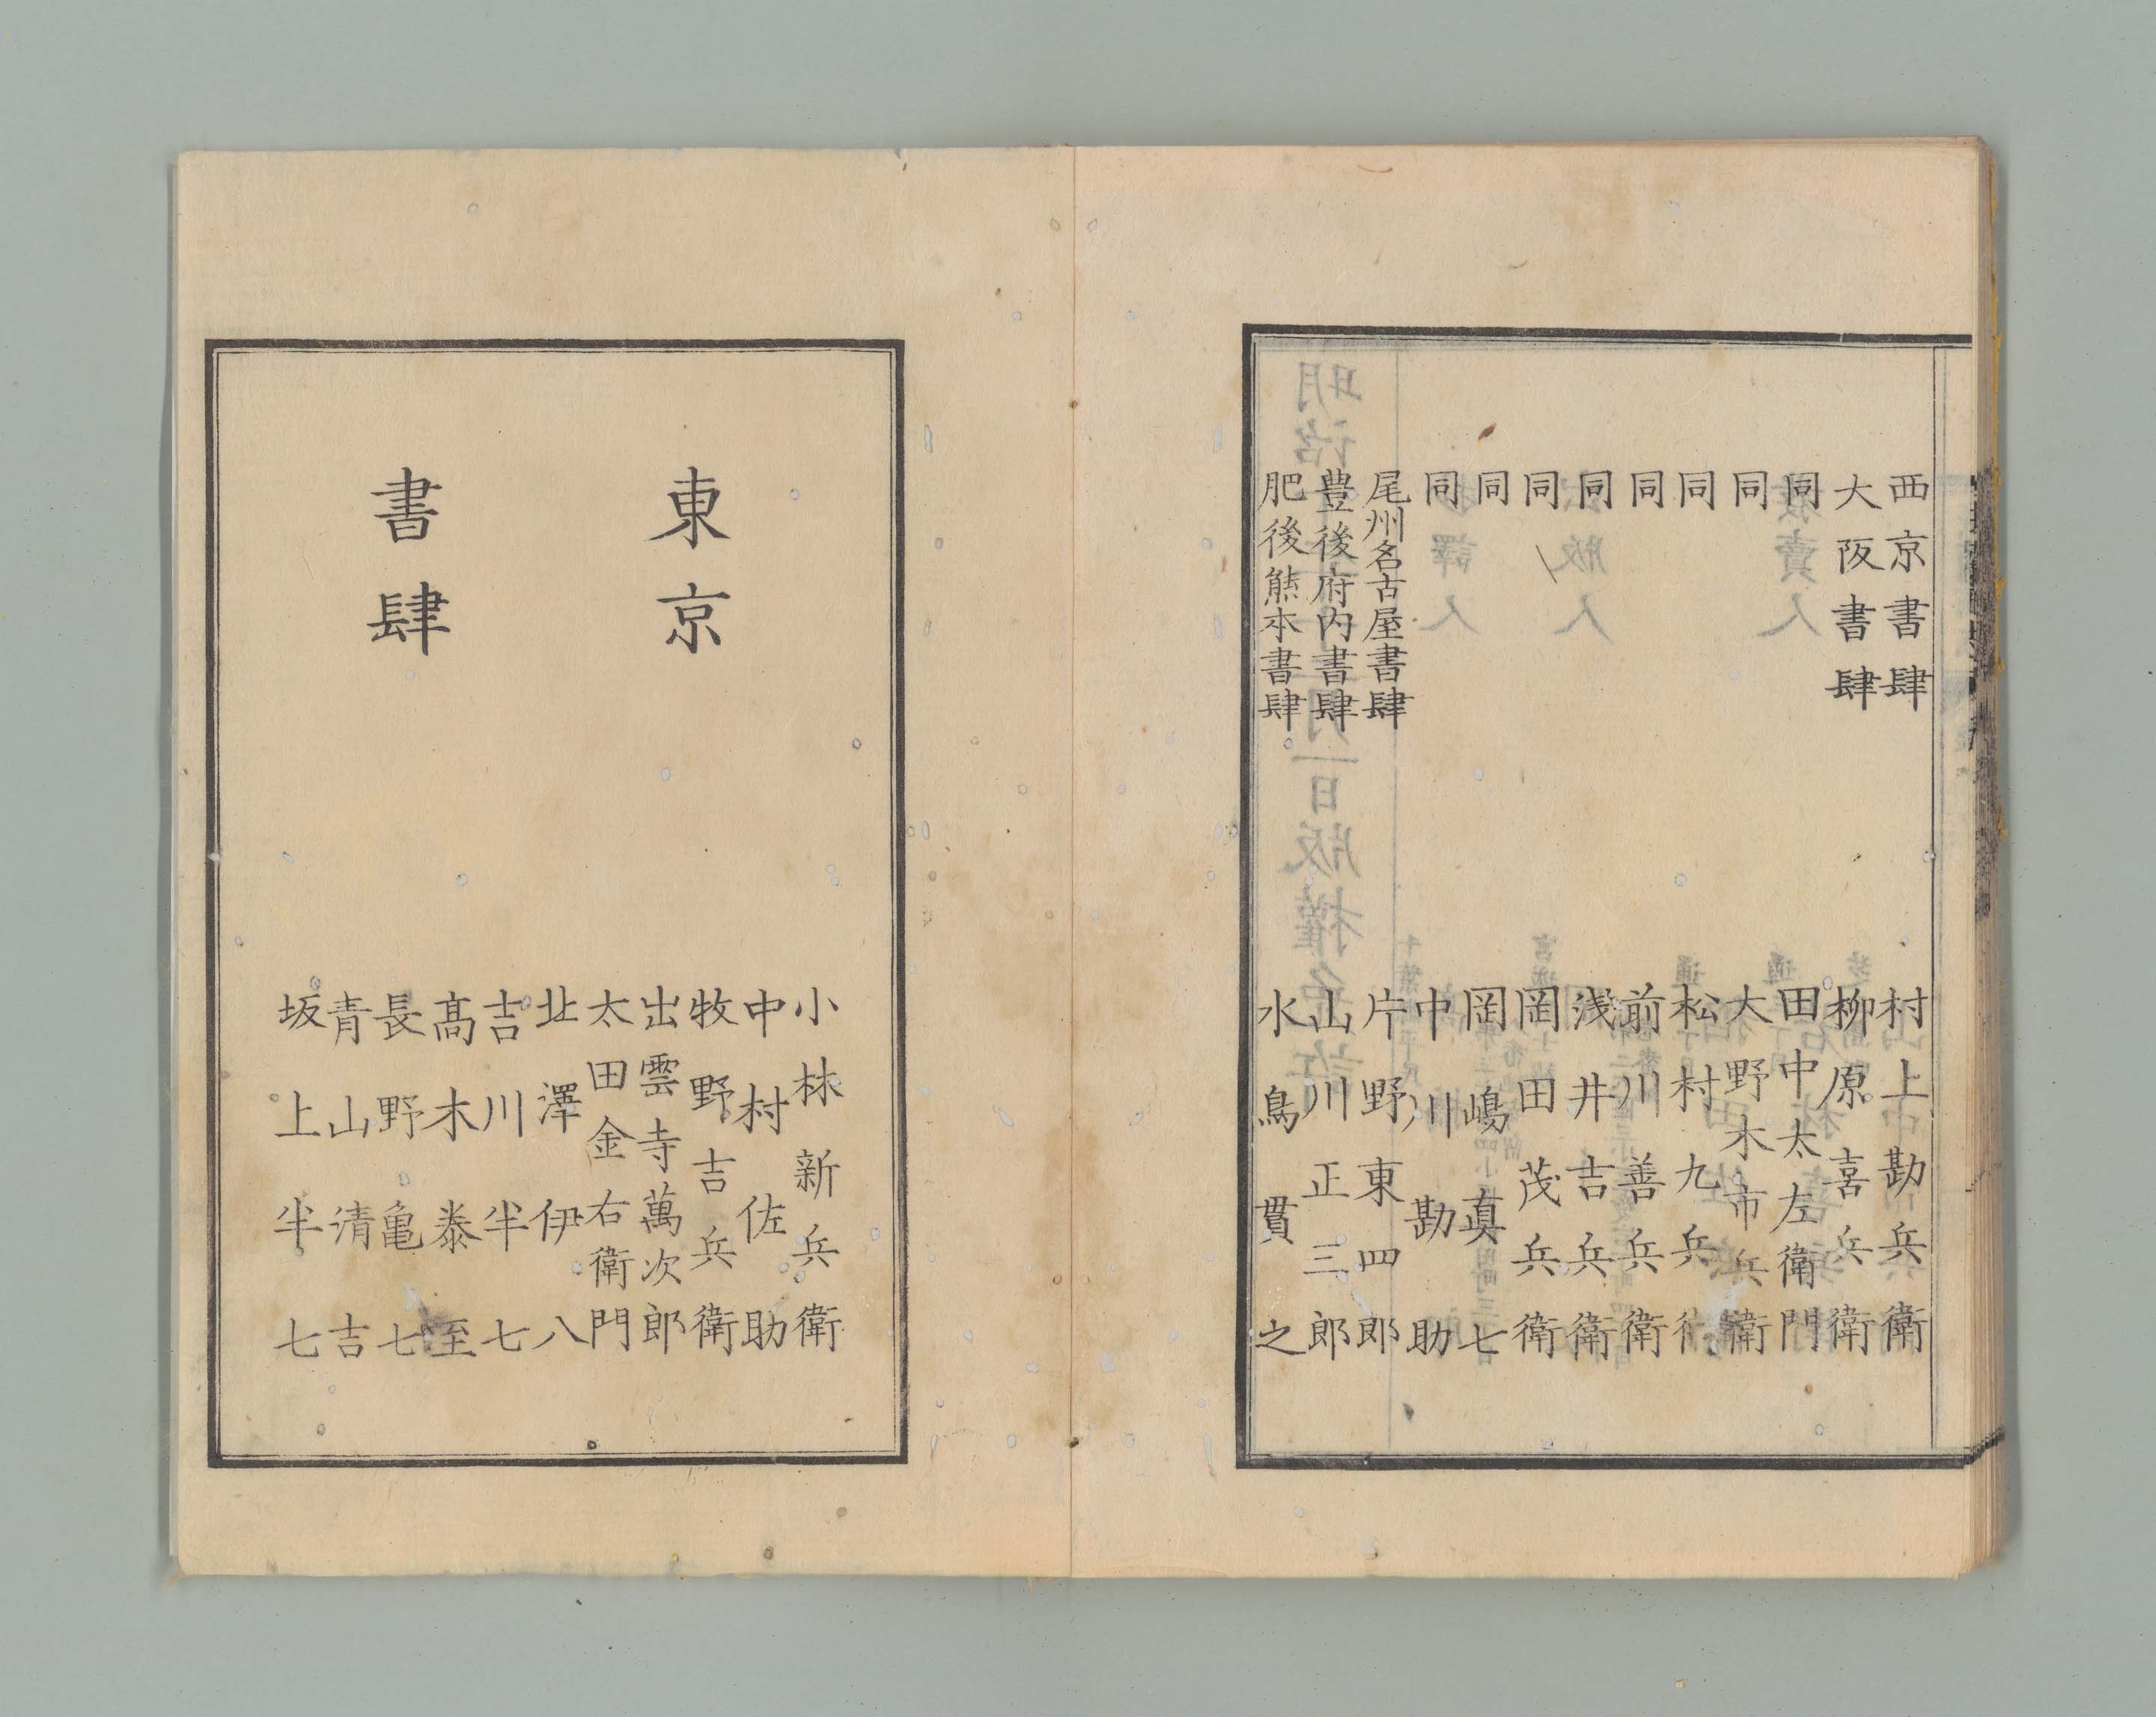 西京書肆 村上勘兵衛
大阪書肆 柳原喜兵衛
同 田中太左衛門
同 大野木市兵衛
同 松村九兵衛
同 前川善兵衛
同 浅井吉兵衛
同 岡田茂兵衛
同 岡嶋真七
同 中川勘助
尾州名古屋書肆 片野東四郎
豊後府内書肆 山川正三郎
肥後熊本書肆 水鳥貫之
東京
書肆
小林新兵衛
中村佐助
牧野吉兵衛
出雲寺萬次郎
太田金右衛門
北澤伊八
吉川半七
髙木泰至
長野亀七
青山清吉
坂上半七